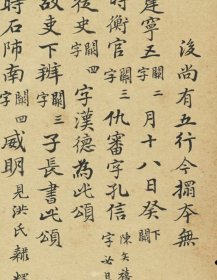 後尚有五行今搨本無
建寧五闕二字月十八日癸下闕
時衡官闕三字仇審字孔信
從史闕四字字漢德為此頌
故吏下辨闕三字子長書此頌
時石師南闕四字威明見洪氏隸釋